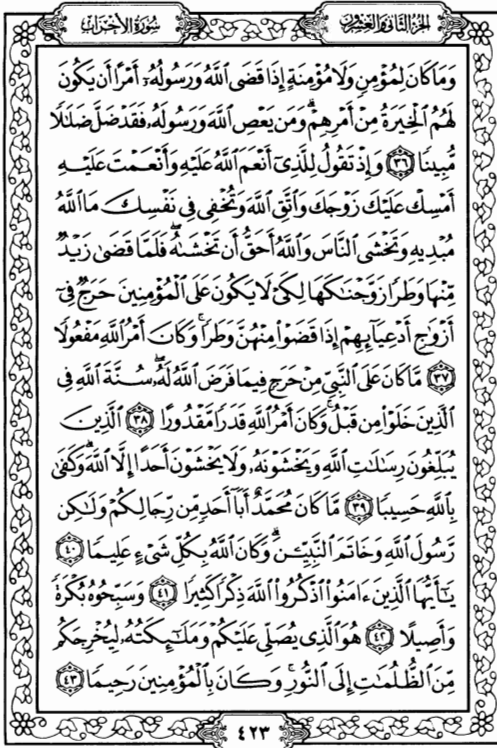 الجزء الثاني والعشرون
سورة الأحزاب
وَمَا كَانَ لِمُؤْمِنٍ وَلَا مُؤْمِنَةٍ إِذَا قَضَى اللَّهُ وَرَسُولُهُۥٓ أَمْرًا أَن يَكُونَ
لَهُمُ الْخِيَرَةُ مِنْ أَمْرِهِمْ ۗ وَمَن يَعْصِ اللَّهَ وَرَسُولَهُۥ فَقَدْ ضَلَّ ضَلَٰلًا
مُّبِينًا ٣٦ وَإِذْ تَقُولُ لِلَّذِىٓ أَنْعَمَ اللَّهُ عَلَيْهِ وَأَنْعَمْتَ عَلَيْهِ
أَمْسِكْ عَلَيْكَ زَوْجَكَ وَاتَّقِ اللَّهَ وَتُخْفِى فِى نَفْسِكَ مَا اللَّهُ
مُبْدِيهِ وَتَخْشَى النَّاسَ وَاللَّهُ أَحَقُّ أَن تَخْشَىٰهُ ۖ فَلَمَّا قَضَىٰ زَيْدٌ
مِّنْهَا وَطَرًا زَوَّجْنَٰكَهَا لِكَىْ لَا يَكُونَ عَلَى الْمُؤْمِنِينَ حَرَجٌ فِىٓ
أَزْوَٰجِ أَدْعِيَآئِهِمْ إِذَا قَضَوْا۟ مِنْهُنَّ وَطَرًا ۚ وَكَانَ أَمْرُ اللَّهِ مَفْعُولًا
٣٧ مَّا كَانَ عَلَى النَّبِىِّ مِنْ حَرَجٍ فِيمَا فَرَضَ اللَّهُ لَهُۥ ۖ سُنَّةَ اللَّهِ فِى
الَّذِينَ خَلَوْا۟ مِن قَبْلُ ۚ وَكَانَ أَمْرُ اللَّهِ قَدَرًا مَّقْدُورًا ٣٨ الَّذِينَ
يُبَلِّغُونَ رِسَٰلَٰتِ اللَّهِ وَيَخْشَوْنَهُۥ وَلَا يَخْشَوْنَ أَحَدًا إِلَّا اللَّهَ ۗ وَكَفَىٰ
بِاللَّهِ حَسِيبًا ٣٩ مَّا كَانَ مُحَمَّدٌ أَبَآ أَحَدٍ مِّن رِّجَالِكُمْ وَلَٰكِن
رَّسُولَ اللَّهِ وَخَاتَمَ النَّبِيِّۦنَ ۗ وَكَانَ اللَّهُ بِكُلِّ شَىْءٍ عَلِيمًا ٤٠
يَٰٓأَيُّهَا الَّذِينَ ءَامَنُوا۟ اذْكُرُوا۟ اللَّهَ ذِكْرًا كَثِيرًا ٤١ وَسَبِّحُوهُ بُكْرَةً
وَأَصِيلًا ٤٢ هُوَ الَّذِى يُصَلِّى عَلَيْكُمْ وَمَلَٰٓئِكَتُهُۥ لِيُخْرِجَكُم
مِّنَ الظُّلُمَٰتِ إِلَى النُّورِ ۚ وَكَانَ بِالْمُؤْمِنِينَ رَحِيمًا ٤٣
٤٢٣